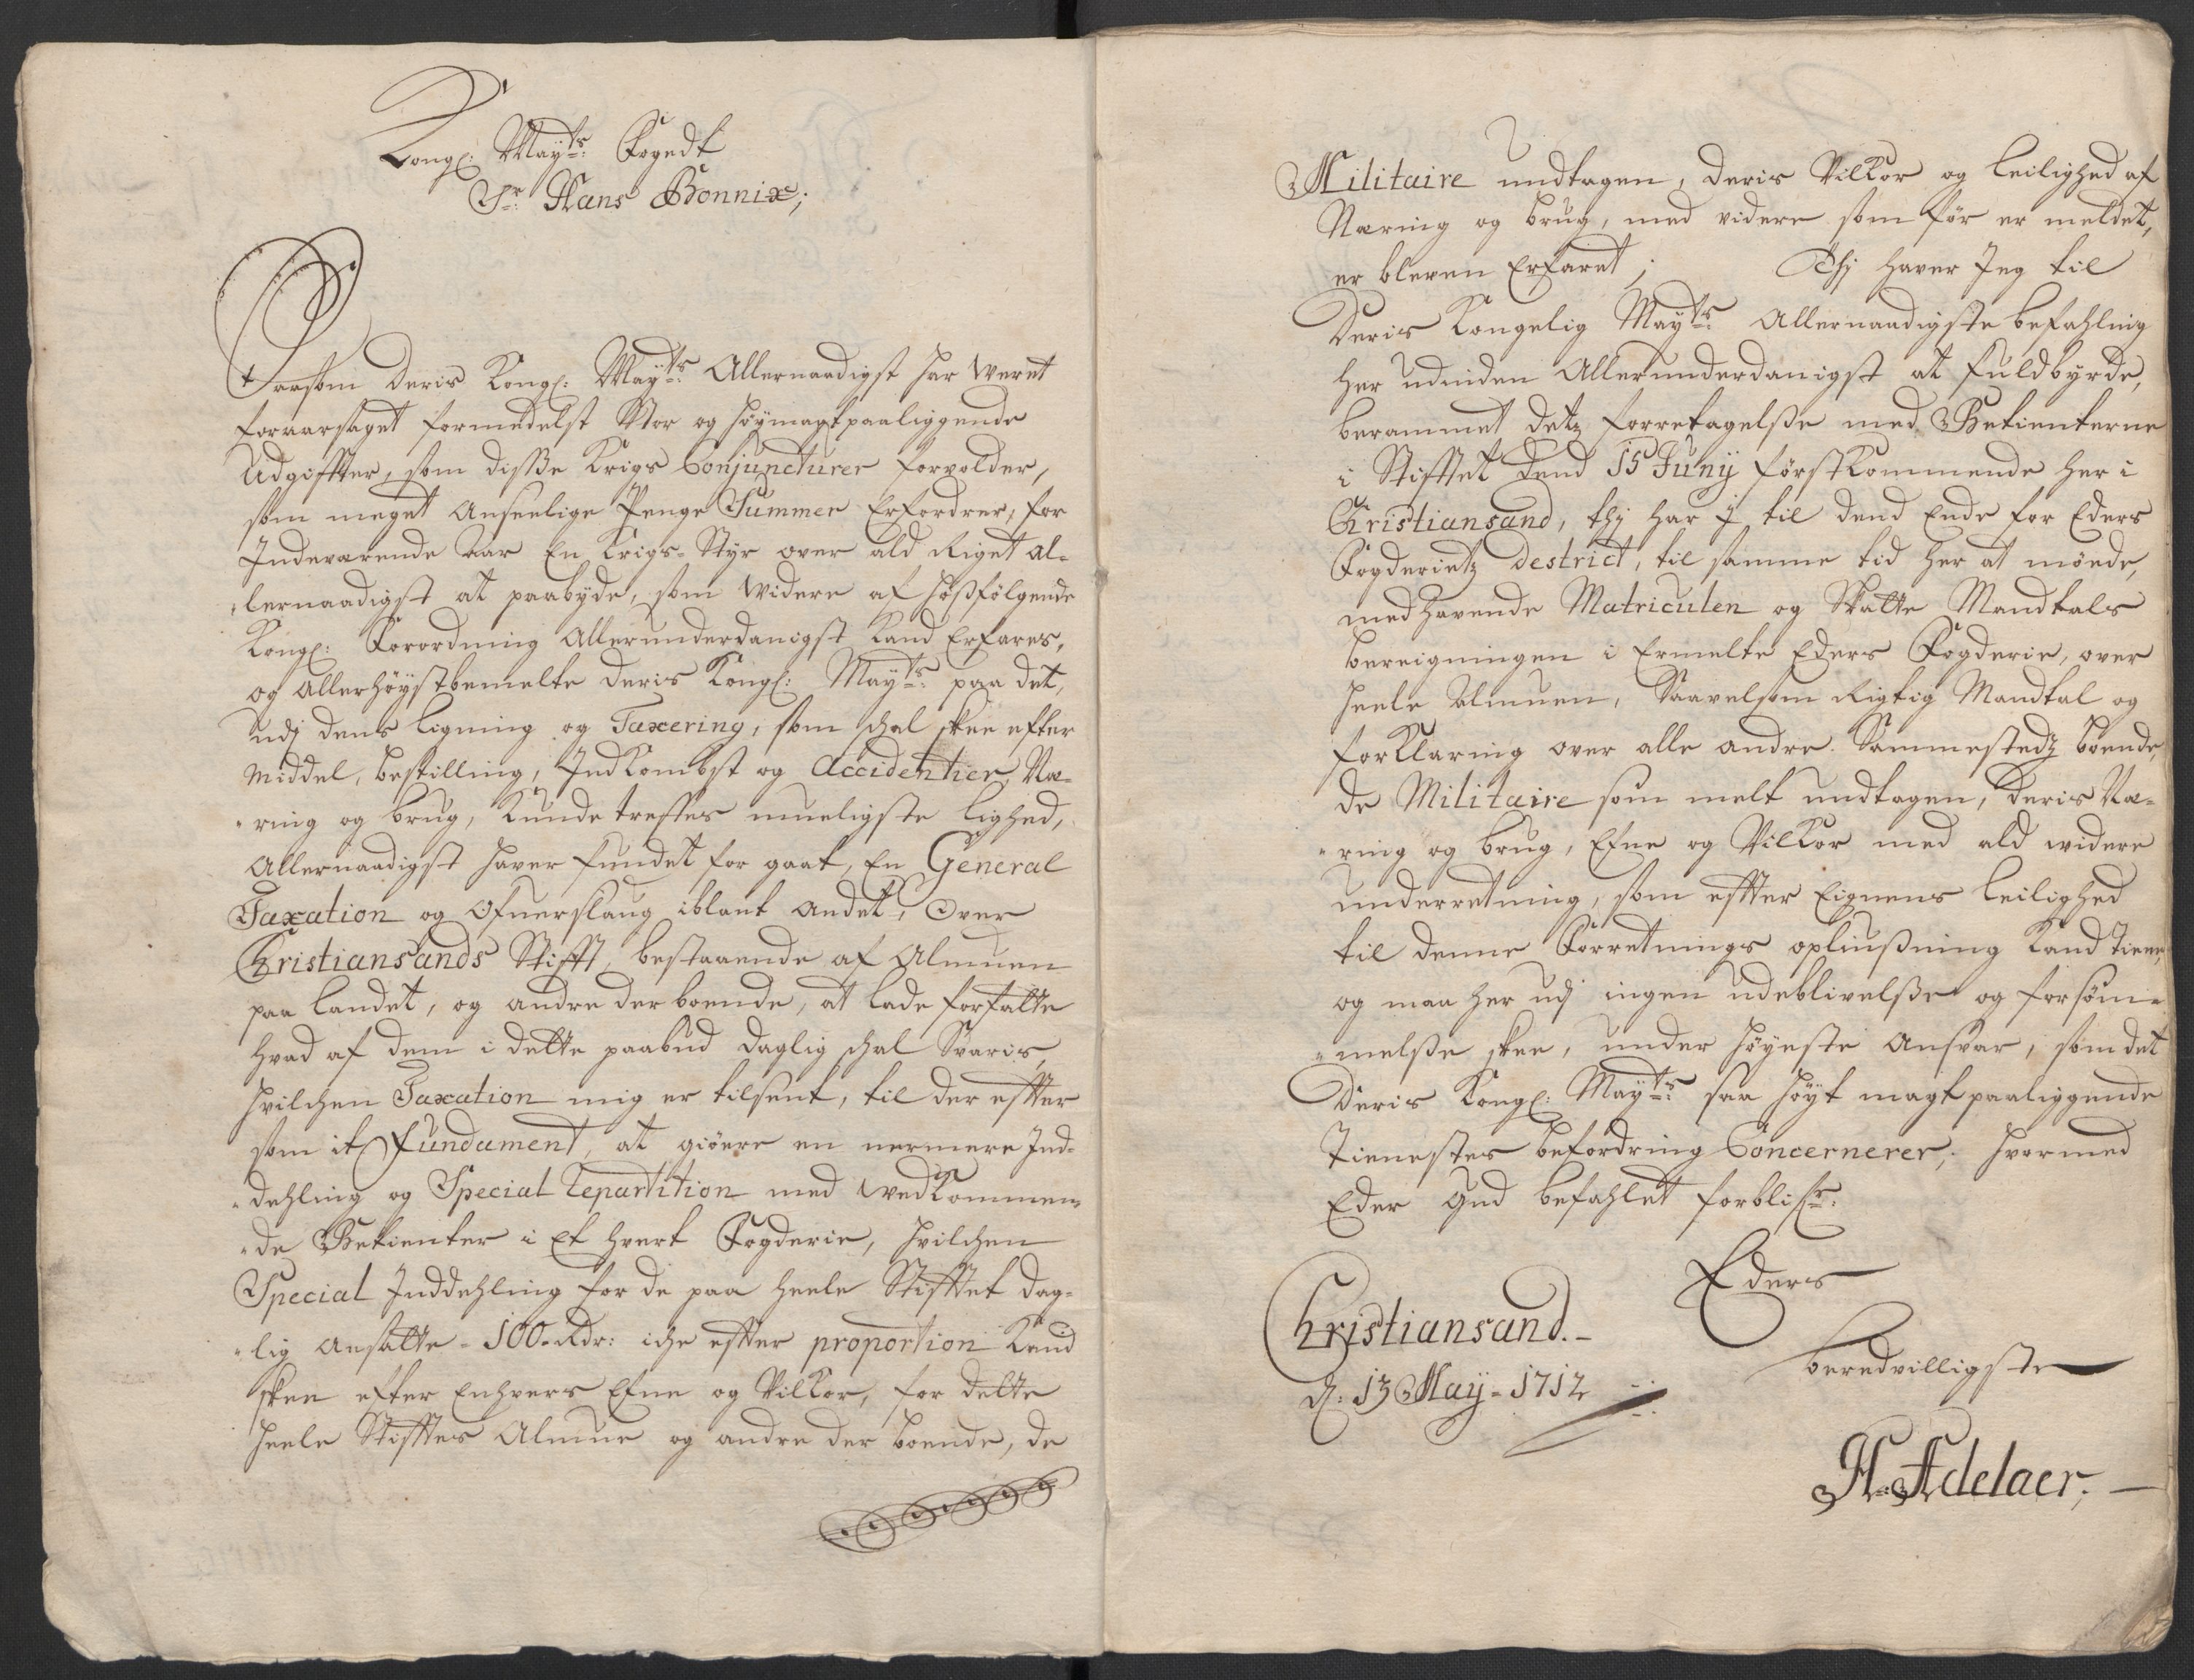 Kongl: Mayts: Fogedt
Sr: Hans Bonnix;
Saasom Deris Kongl: Mayts: Allernaadigst har weret
foraarsaget formedelst Stor og höymagtpaaliggende
Udgiffter, som disse Krigs Conjuncturer forvolder,
som meget Anseelige Penge Summer Erfordrer, for
Indeværende Aar En Krigs-Styr over ald Riget Al-
lernaadigst at paabyde, som widere af hoßfölgende
Kongl: Forordning Allerunderdanigst Kand Erfares,
og Allerhöystbemelte Deris Kongl: Mayts: paa det,
udj dens ligning og Taxering, som schal skee efter
Middel, bestilling, Indkombst og Accidentier, Næ-
ring og brug, Kunde treffes mueligste lighed,
Allernaadigst haver fundet for gaat, En General
Taxation og Ofuerslaug iblant andet, Over
Christiansands Stifft, bestaaende af Almuen
paa landet, og andre der boende, at lade forfatte
hvad af dem i dette paabud daglig schal Svaris,
hvilchen Taxation mig er tilsent, til der effter
som it Fundament, at giöere en nermere Ind-
dehling og Special Repartition med wedkommen-
de Betienter i Et hvert Fogderie, hvilchen
Special Inddehling for de paa heele Stifftet dag-
lig Ansatte - 100 - Rdr: iche effter proportion Kand
skee efter Enhvers Efne og Vilkor, for dette
heele Stifftes Almue og andre der boende, de
Militaire undtagen, deris Vilkor og leilighed af
Næring og brug, med videre som för er meldet,
er bleven Erfaret; Thj haver Jeg til
Deris Kongelig Mayts: Allernaadigste befahling
her udinden Allerunderdanigst at fuldbyrde,
berammet detz forretagelße med Betienterne
i Stifftet dend 15 Juny förstkommende her i
Christiansand, thj har J til dend Ende for Eders
Fogderietz destrict, til samme tid her at möede,
medhavende Matriculen og Skatte Mandtals
bereigningen i Ermelte Eders Fogderie, over
heele Almuen, Saavelsom Rigtig Mandtal og
forklaring over alle andre Sammestedz boende,
de Militaire som melt undtagen, deris Næ-
ring og brug, Efne og Vilkor med ald widere
underretning, som effter Eignens leilighed
til denne Forretnings opliußning Kand tiene,
og maa her udj ingen udeblivelße og forsöm-
melße skee, under höyeste Ansvar, som det
Deris Kongl: Mayts: saa höyt magtpaaliggende
Tienestes befordring Concernerer; hvormed
Eder Gud befahlet forblifr:
Eders
Christiansand.-
d: 13 May - 1712
beredvilligste
H: Adelaer;